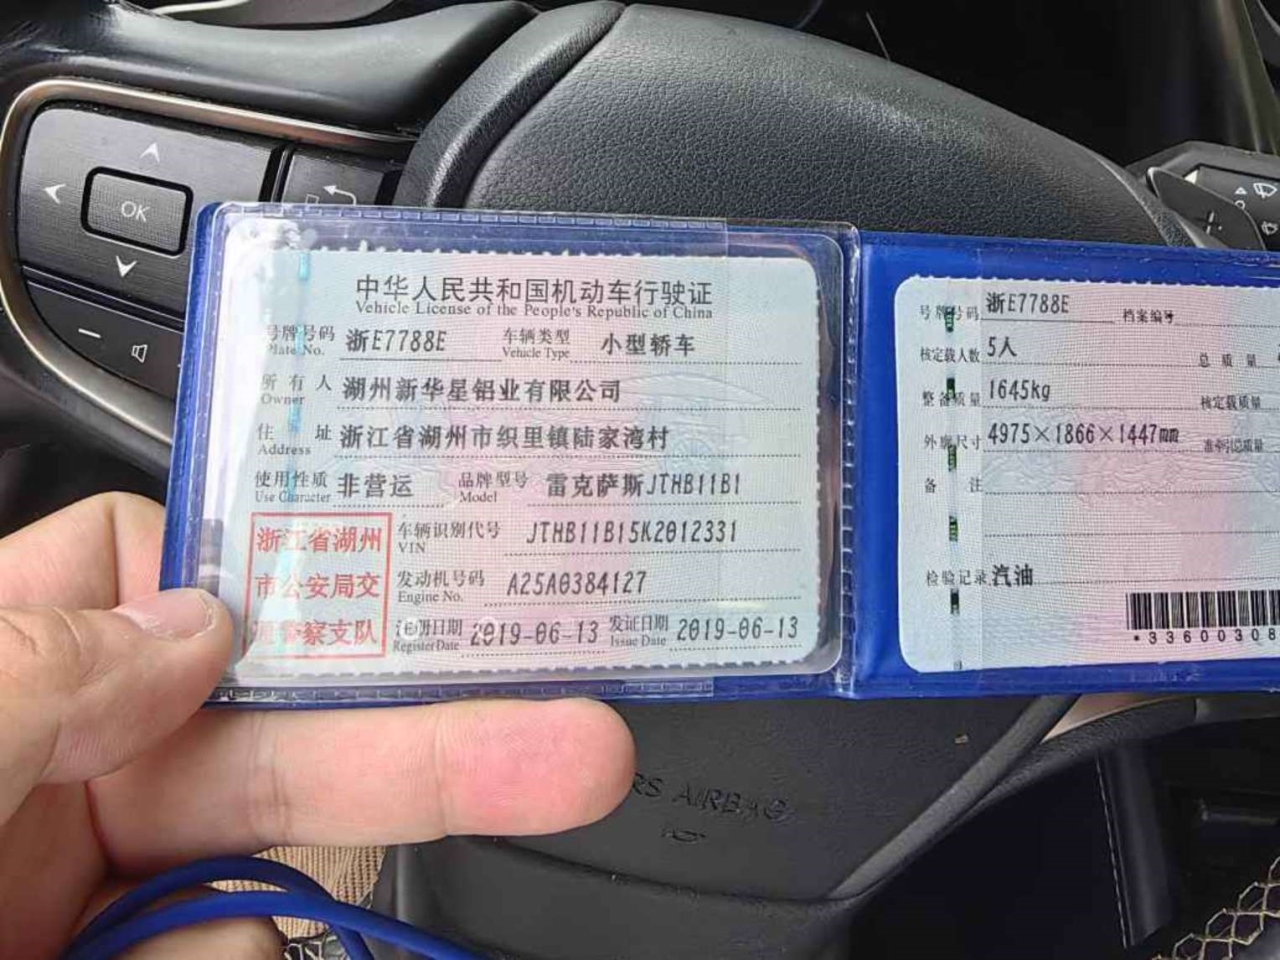 OK
中华人民共和国机动车行驶证
Vehicle License of the People's Republic of China
号牌号码 浙E7788E 车辆类型 小型轿车
Plate No. Vehicle Type
所有人 湖州新华星铝业有限公司
Owner
住址 浙江省湖州市织里镇陆家湾村
Address
使用性质 非营运 品牌型号 雷克萨斯JTHB11B1
Use Character Model
浙江省湖州
市公安局交
通警察支队
车辆识别代号 JTHB11B15K2012331
VIN
发动机号码 A25A0384127
Engine No.
注册日期 2019-06-13 发证日期 2019-06-13
Register Date Issue Date
号牌号码 浙E7788E 档案编号
核定载人数 5人 总质量
整备质量 1645kg 核定载质量
外廓尺寸 4975×1866×1447mm 准牵引总质量
备注
检验记录 汽油
*33600308
RS AIRBAG